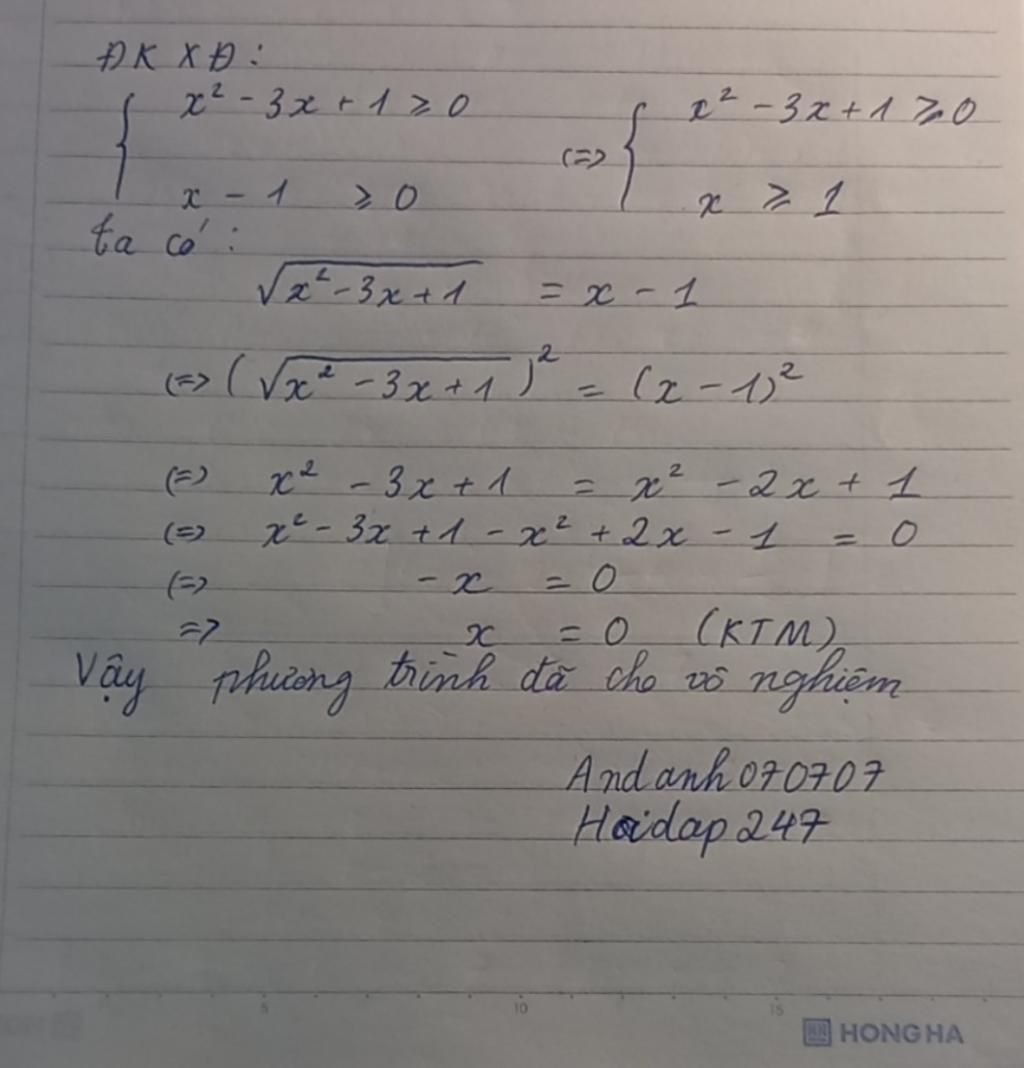 ĐKXĐ:
{ x² - 3x + 1 ≥ 0 (=>) { x² - 3x + 1 ≥ 0
x - 1 ≥ 0 x ≥ 1
ta có:
√(x² - 3x + 1) = x - 1
(=>) (√(x² - 3x + 1))² = (x - 1)²
(=>) x² - 3x + 1 = x² - 2x + 1
(=>) x² - 3x + 1 - x² + 2x - 1 = 0
(=>) - x = 0
=> x = 0 (KTM)
Vậy phương trình đã cho vô nghiệm
Andanh070707
Hoidap247
5 10 15
HONG HA